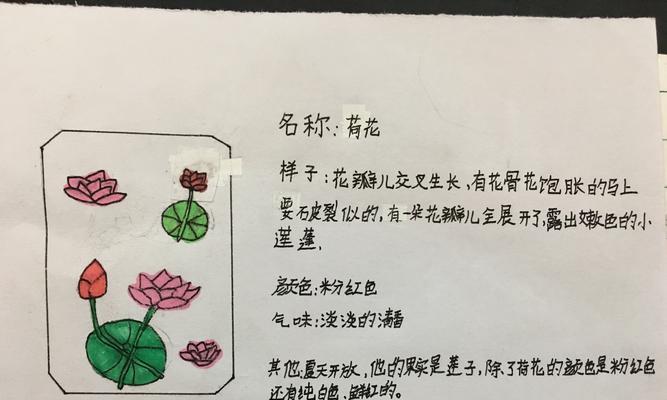 名称:荷花
样子:花瓣儿交叉生长,有花骨花饱胀的马上
要破裂似的,有一朵花瓣儿全展开了,露出嫩色的小
莲蓬.
颜色:粉红色
气味:淡淡的清香
其他:夏天开放,他的果实是莲子,除了荷花的颜色是粉红色
还有纯白色,鲜红的。